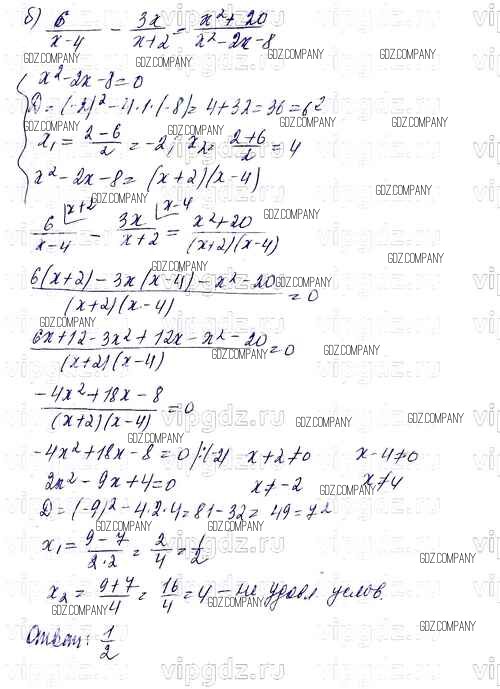 б) 6/(x-4) - 3x/(x+2) = (x²+20)/(x²-2x-8)
x²-2x-8=0
D=(-2)²-4·1·(-8)=4+32=36=6²
x₁=(2-6)/2=-2; x₂=(2+6)/2=4
x²-2x-8=(x+2)(x-4)
6/(x-4) |x+2 - 3x/(x+2) |x-4 = (x²+20)/((x+2)(x-4))
(6(x+2)-3x(x-4)-x²-20)/((x+2)(x-4))=0
(6x+12-3x²+12x-x²-20)/((x+2)(x-4))=0
(-4x²+18x-8)/((x+2)(x-4))=0
-4x²+18x-8=0 |:(-2) x+2≠0 x-4≠0
2x²-9x+4=0 x≠-2 x≠4
D=(-9)²-4·2·4=81-32=49=7²
x₁=(9-7)/(2·2)=2/4=1/2
x₂=(9+7)/4=16/4=4 - не удовл. услов.
Ответ: 1/2
GDZ.COMPANY
vipgdz.ru